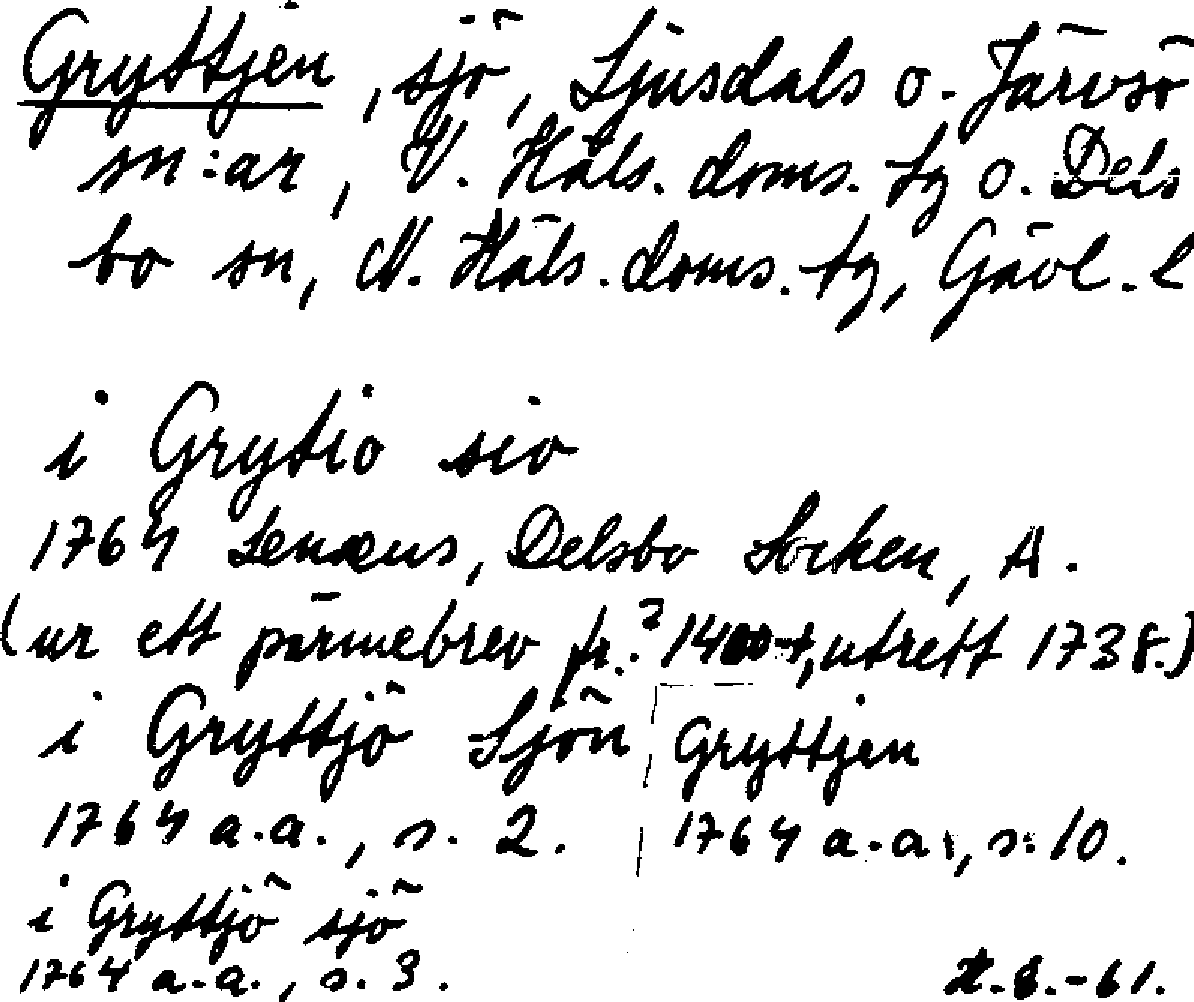 Gryttjen, sjö, Ljusdals o. Järvsö
sn:ar, V. Häls. doms. tg o. Dels
bo sn, N. Häls. doms. tg, Gävl. l
i Grytio sio
1764 Lenæus, Delsbo Socken, A.
(ur ett pärmebrev fr. ? 1400-t, utrett 1738.)
i Gryttjö Sjön
1764 a.a., s. 2.
Gryttjen
1764 a.a., s. 10.
i Gryttjö sjö
1764 a.a., s. 3.